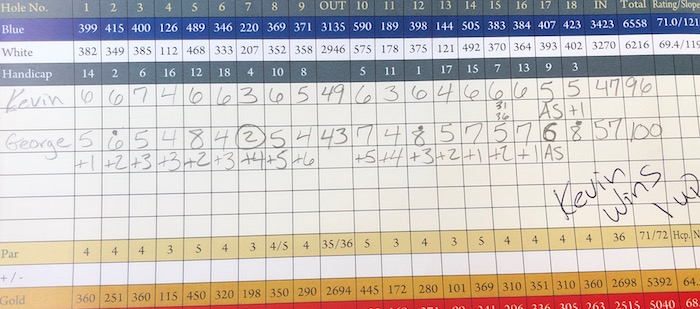 Hole No. 1 2 3 4 5 6 7 8 9 OUT 10 11 12 13 14 15 16 17 18 IN Total Rating/Slope
Blue 399 415 400 126 489 346 220 369 371 3135 590 189 398 144 505 383 384 407 423 3423 6558 71.0/121
White 382 349 385 112 468 333 207 352 358 2946 575 178 375 121 492 370 364 393 402 3270 6216 69.4/119
Handicap 14 2 6 16 12 18 4 10 8 5 11 1 17 15 7 13 9 3
Kevin 6 6 7 4 6 6 3 6 5 49 6 3 6 4 6 6 6 5 5 47 96
31 36 AS +1
George 5 6 5 4 8 4 2 5 4 43 7 4 8 5 7 5 7 6 8 57 100
+1 +2 +3 +3 +2 +3 +4 +5 +6 +5 +4 +3 +2 +1 +2 +1 AS
Kevin
wins
1 up
Par 4 4 4 3 5 4 3 4/5 4 35/36 5 3 4 3 5 4 4 4 4 36 71/72 Hcp. N
+/-
Gold 360 251 360 115 450 320 198 350 290 2694 445 172 280 101 369 310 351 310 360 2698 5392 64.
241 296 336 305 263 2515 5040 68.